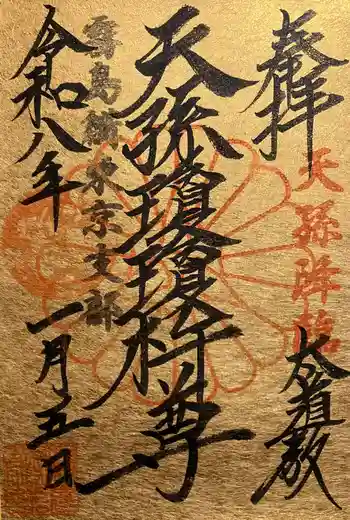 奉拝
天孫降臨
大道教
天孫瓊瓊杵尊
霊島館東京支部
令和八年
一月五日